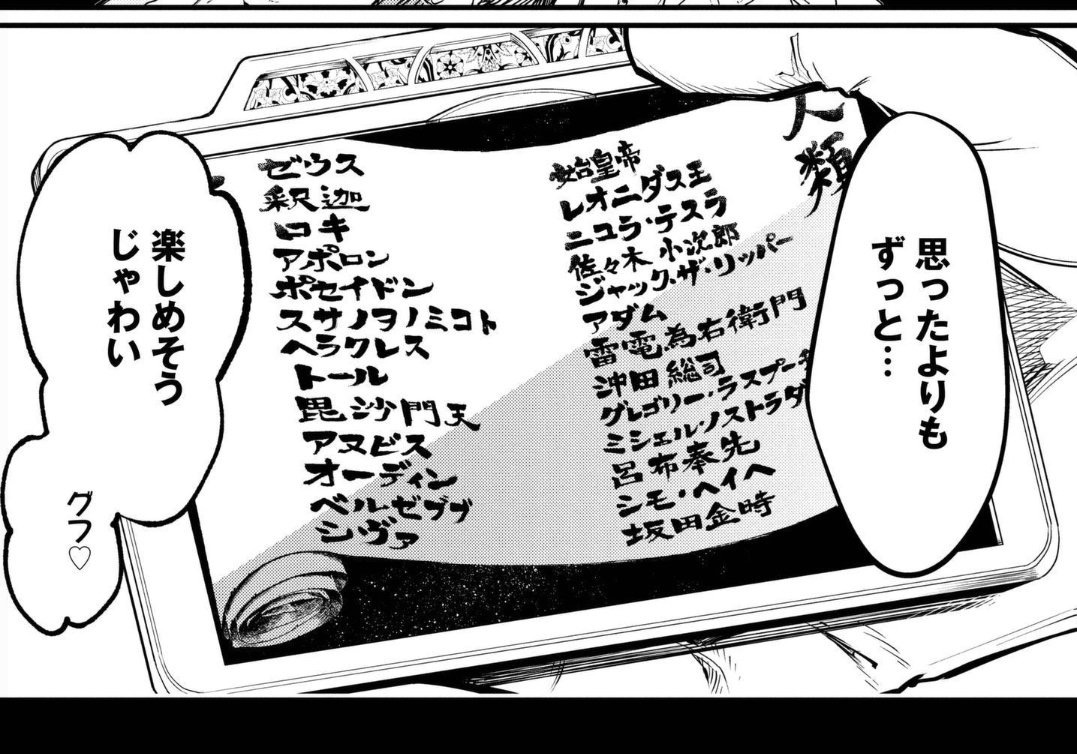 思ったよりも
ずっと…
人類
始皇帝
レオニダス王
ニコラ・テスラ
佐々木小次郎
ジャック・ザ・リッパー
アダム
雷電為右衛門
沖田総司
グレゴリー・ラスプーチ
ミシェル・ノストラダ
呂布奉先
シモ・ヘイヘ
坂田金時
ゼウス
釈迦
ロキ
アポロン
ポセイドン
スサノヲノミコト
ヘラクレス
トール
毘沙門天
アヌビス
オーディン
ベルゼブブ
シヴァ
楽しめそう
じゃわい
グフ♡